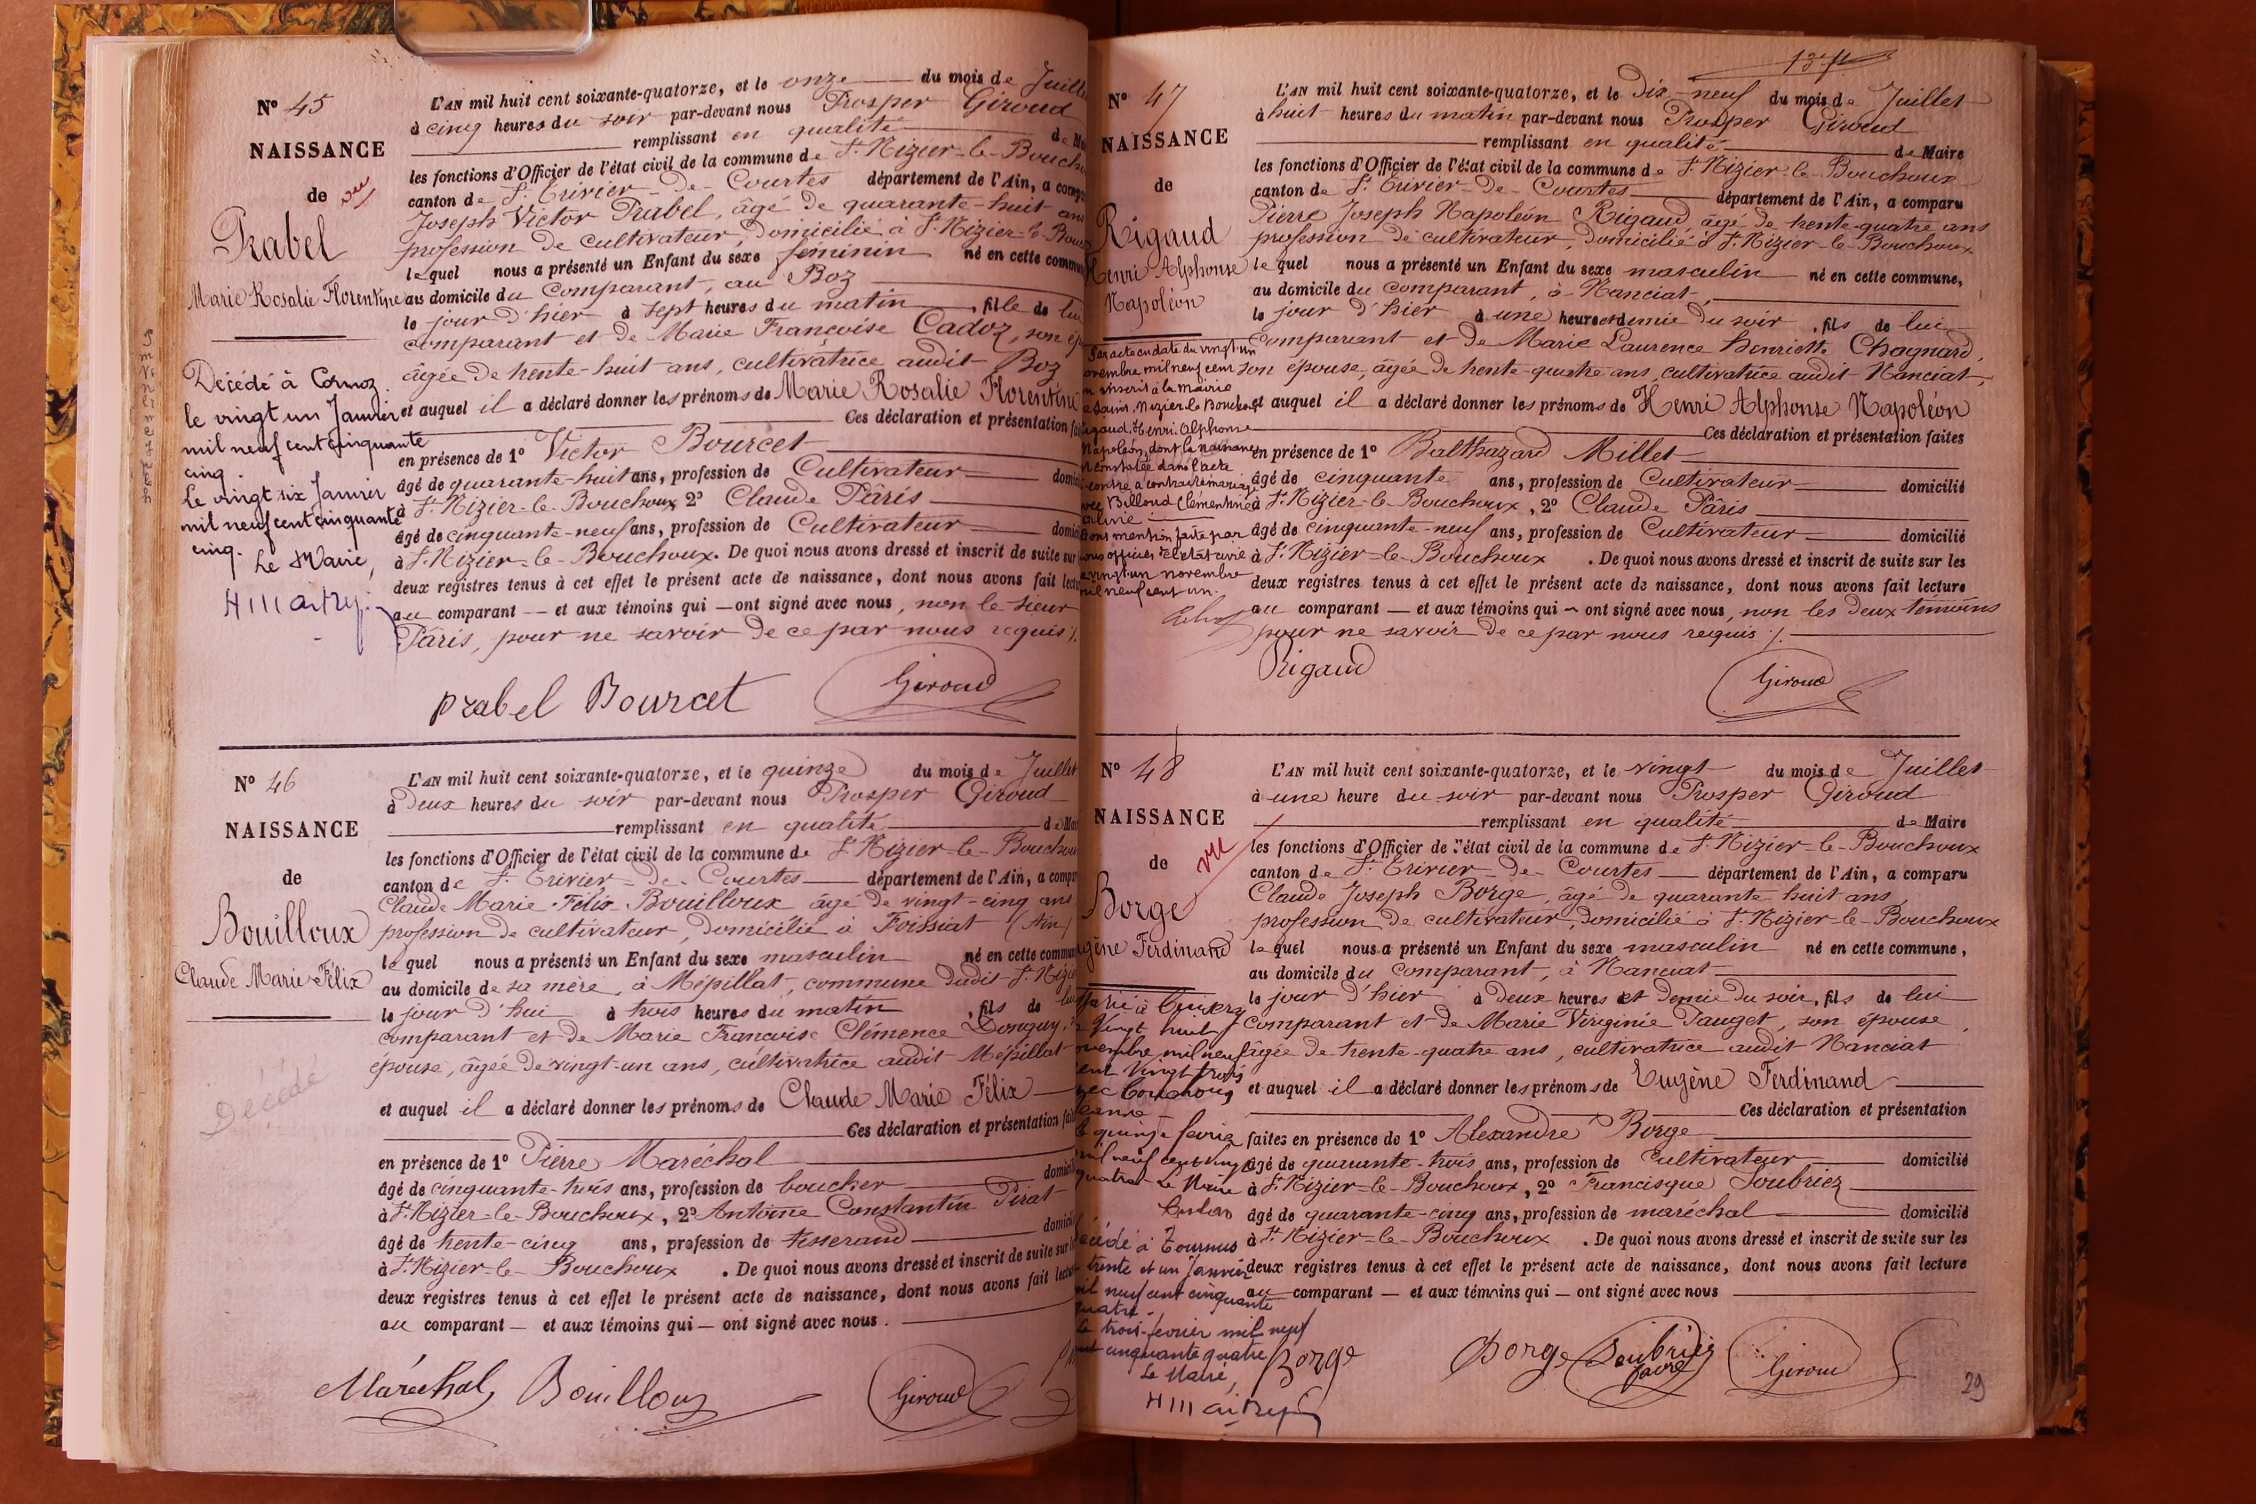 N° 45
NAISSANCE
de
vu
Prabel
Marie Rosalie Florentine
Décédé à Cormoz
le vingt un Janvier
mil neuf cent cinquante
cinq.
Le vingt six Janvier
mil neuf cent cinquante
cinq.
Le Maire,
L'AN mil huit cent soixante-quatorze, et le onze du mois de Juillet
à cinq heures du soir par-devant nous Prosper Giroud
remplissant en qualité de
les fonctions d'Officier de l'état civil de la commune de St. Nizier-le-Bouchoux
canton de St. Trivier-de-Courtes département de l'Ain, a
Joseph Victor Prabel, âgé de quarante-huit ans
profession de cultivateur, domicilié à St. Nizier-le-
lequel nous a présenté un Enfant du sexe féminin né en cette
au domicile du comparant, au Boz
le jour d'hier à sept heures du matin, fille de lui
comparant et de Marie Françoise Cadoz, son
âgée de trente-huit ans, cultivatrice audit Boz
et auquel il a déclaré donner les prénoms de Marie Rosalie Florentine
Ces déclaration et présentation
en présence de 1° Victor Bourcet
âgé de quarante-huit ans, profession de Cultivateur
à St. Nizier-le-Bouchoux, 2° Claude Pâris
âgé de cinquante-neuf ans, profession de Cultivateur
à St. Nizier-le-Bouchoux. De quoi nous avons dressé et inscrit de suite sur
deux registres tenus à cet effet le présent acte de naissance, dont nous avons fait
au comparant — et aux témoins qui — ont signé avec nous, non le sieur
Pâris, pour ne savoir de ce par nous requis /.
prabel Bourcet Giroud
N° 46
NAISSANCE
de
Bouilloux
Claude Marie Félix
Décédé
L'AN mil huit cent soixante-quatorze, et le quinze du mois de Juillet
à deux heures du soir par-devant nous Prosper Giroud
remplissant en qualité de
les fonctions d'Officier de l'état civil de la commune de St. Nizier-le-Bouchoux
canton de St. Trivier-de-Courtes département de l'Ain, a
Claude Marie Félix Bouilloux âgé de vingt-cinq ans
profession de cultivateur, domicilié à Foissiat (Ain)
lequel nous a présenté un Enfant du sexe masculin né en cette
au domicile de sa mère, à Mépillat, commune dudit St. Nizier
le jour d'hui à trois heures du matin, fils de lui
comparant et de Marie Françoise Clémence Donguy,
épouse, âgée de vingt-un ans, cultivatrice audit Mépillat
et auquel il a déclaré donner les prénoms de Claude Marie Félix
Ces déclaration et présentation
en présence de 1° Pierre Maréchal
âgé de cinquante-trois ans, profession de boucher
à St. Nizier-le-Bouchoux, 2° Antoine Constantin Pirat
âgé de trente-cinq ans, profession de tisserand
à St. Nizier-le-Bouchoux. De quoi nous avons dressé et inscrit de suite sur
deux registres tenus à cet effet le présent acte de naissance, dont nous avons fait
au comparant — et aux témoins qui — ont signé avec nous.
Maréchal Bouilloux Giroud
N° 47
NAISSANCE
de
Rigaud
Henri Alphonse
Napoléon
L'AN mil huit cent soixante-quatorze, et le dix-neuf du mois de Juillet
à huit heures du matin par-devant nous Prosper Giroud
remplissant en qualité de Maire
les fonctions d'Officier de l'état civil de la commune de St. Nizier-le-Bouchoux
canton de St. Trivier-de-Courtes département de l'Ain, a comparu
Pierre Joseph Napoléon Rigaud, âgé de trente-quatre ans
profession de cultivateur, domicilié à St. Nizier-le-Bouchoux
lequel nous a présenté un Enfant du sexe masculin né en cette commune,
au domicile du comparant, à Nanciat,
le jour d'hier à une heure et demie du soir, fils de lui
comparant et de Marie Laurence henriette Chagnard,
son épouse, âgée de trente-quatre ans, cultivatrice audit Nanciat,
et auquel il a déclaré donner les prénoms de Henri Alphonse Napoléon
Ces déclaration et présentation faites
en présence de 1° Balthazard Millet
âgé de cinquante ans, profession de Cultivateur domicilié
à St. Nizier-le-Bouchoux, 2° Claude Pâris
âgé de cinquante-neuf ans, profession de Cultivateur domicilié
à St. Nizier-le-Bouchoux. De quoi nous avons dressé et inscrit de suite sur les
deux registres tenus à cet effet le présent acte de naissance, dont nous avons fait lecture
au comparant — et aux témoins qui — ont signé avec nous, non les deux témoins
pour ne savoir de ce par nous requis /.
Rigaud Giroud
Par acte en date du vingt un
novembre mil neuf cent
un inscrit à la Mairie
de Saint-Nizier-le-Bouchoux
Rigaud Henri Alphonse
Napoléon, dont la naissance
est constatée dans l'acte
ci-contre a contracté mariage
avec Billoud Clémentine
Dont mention faite par
nous officier de l'état civil
le vingt-un novembre
mil neuf cent un.
N° 48
NAISSANCE
de
vu
Borge
Eugène Ferdinand
L'AN mil huit cent soixante-quatorze, et le vingt du mois de Juillet
à une heure du soir par-devant nous Prosper Giroud
remplissant en qualité de Maire
les fonctions d'Officier de l'état civil de la commune de St. Nizier-le-Bouchoux
canton de St. Trivier-de-Courtes département de l'Ain, a comparu
Claude Joseph Borge, âgé de quarante huit ans,
profession de cultivateur, domicilié à St. Nizier-le-Bouchoux
lequel nous a présenté un Enfant du sexe masculin né en cette commune,
au domicile du comparant, à Nanciat
le jour d'hier à deux heures et demie du soir, fils de lui
comparant et de Marie Virginie Pauget, son épouse,
âgée de trente-quatre ans, cultivatrice audit Nanciat
et auquel il a déclaré donner les prénoms de Eugène Ferdinand
Ces déclaration et présentation
faites en présence de 1° Alexandre Borge
âgé de quarante-trois ans, profession de Cultivateur domicilié
à St. Nizier-le-Bouchoux, 2° Francisque Soubriez
âgé de quarante-cinq ans, profession de maréchal domicilié
à St. Nizier-le-Bouchoux. De quoi nous avons dressé et inscrit de suite sur les
deux registres tenus à cet effet le présent acte de naissance, dont nous avons fait lecture
au comparant — et aux témoins qui — ont signé avec nous
Marié à
le Vingt huit
novembre mil neuf
cent Vingt trois
avec
Le quinze février
mil neuf cent vingt
quatre Le Maire
Décédé à Tournus
trente et un Janvier
mil neuf cent cinquante
quatre.
Le trois février mil neuf
cent cinquante quatre
Le Maire,
Borge Borge Soubriez Giroud
29